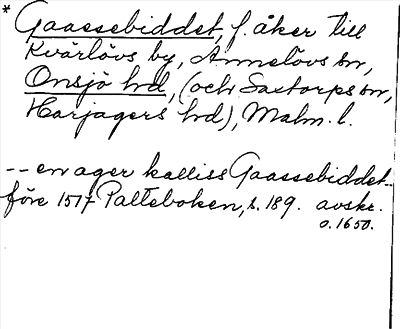 * Gaassebiddet, f. åker till
Kvärlövs by, Annelövs sn,
Onsjö hd, (och Saxtorps sn,
Harjagers hd), Malm. l.
-- en ager kalliss Gaassebiddet --
före 1517 Palteboken, s. 189. avskr.
o. 1650.